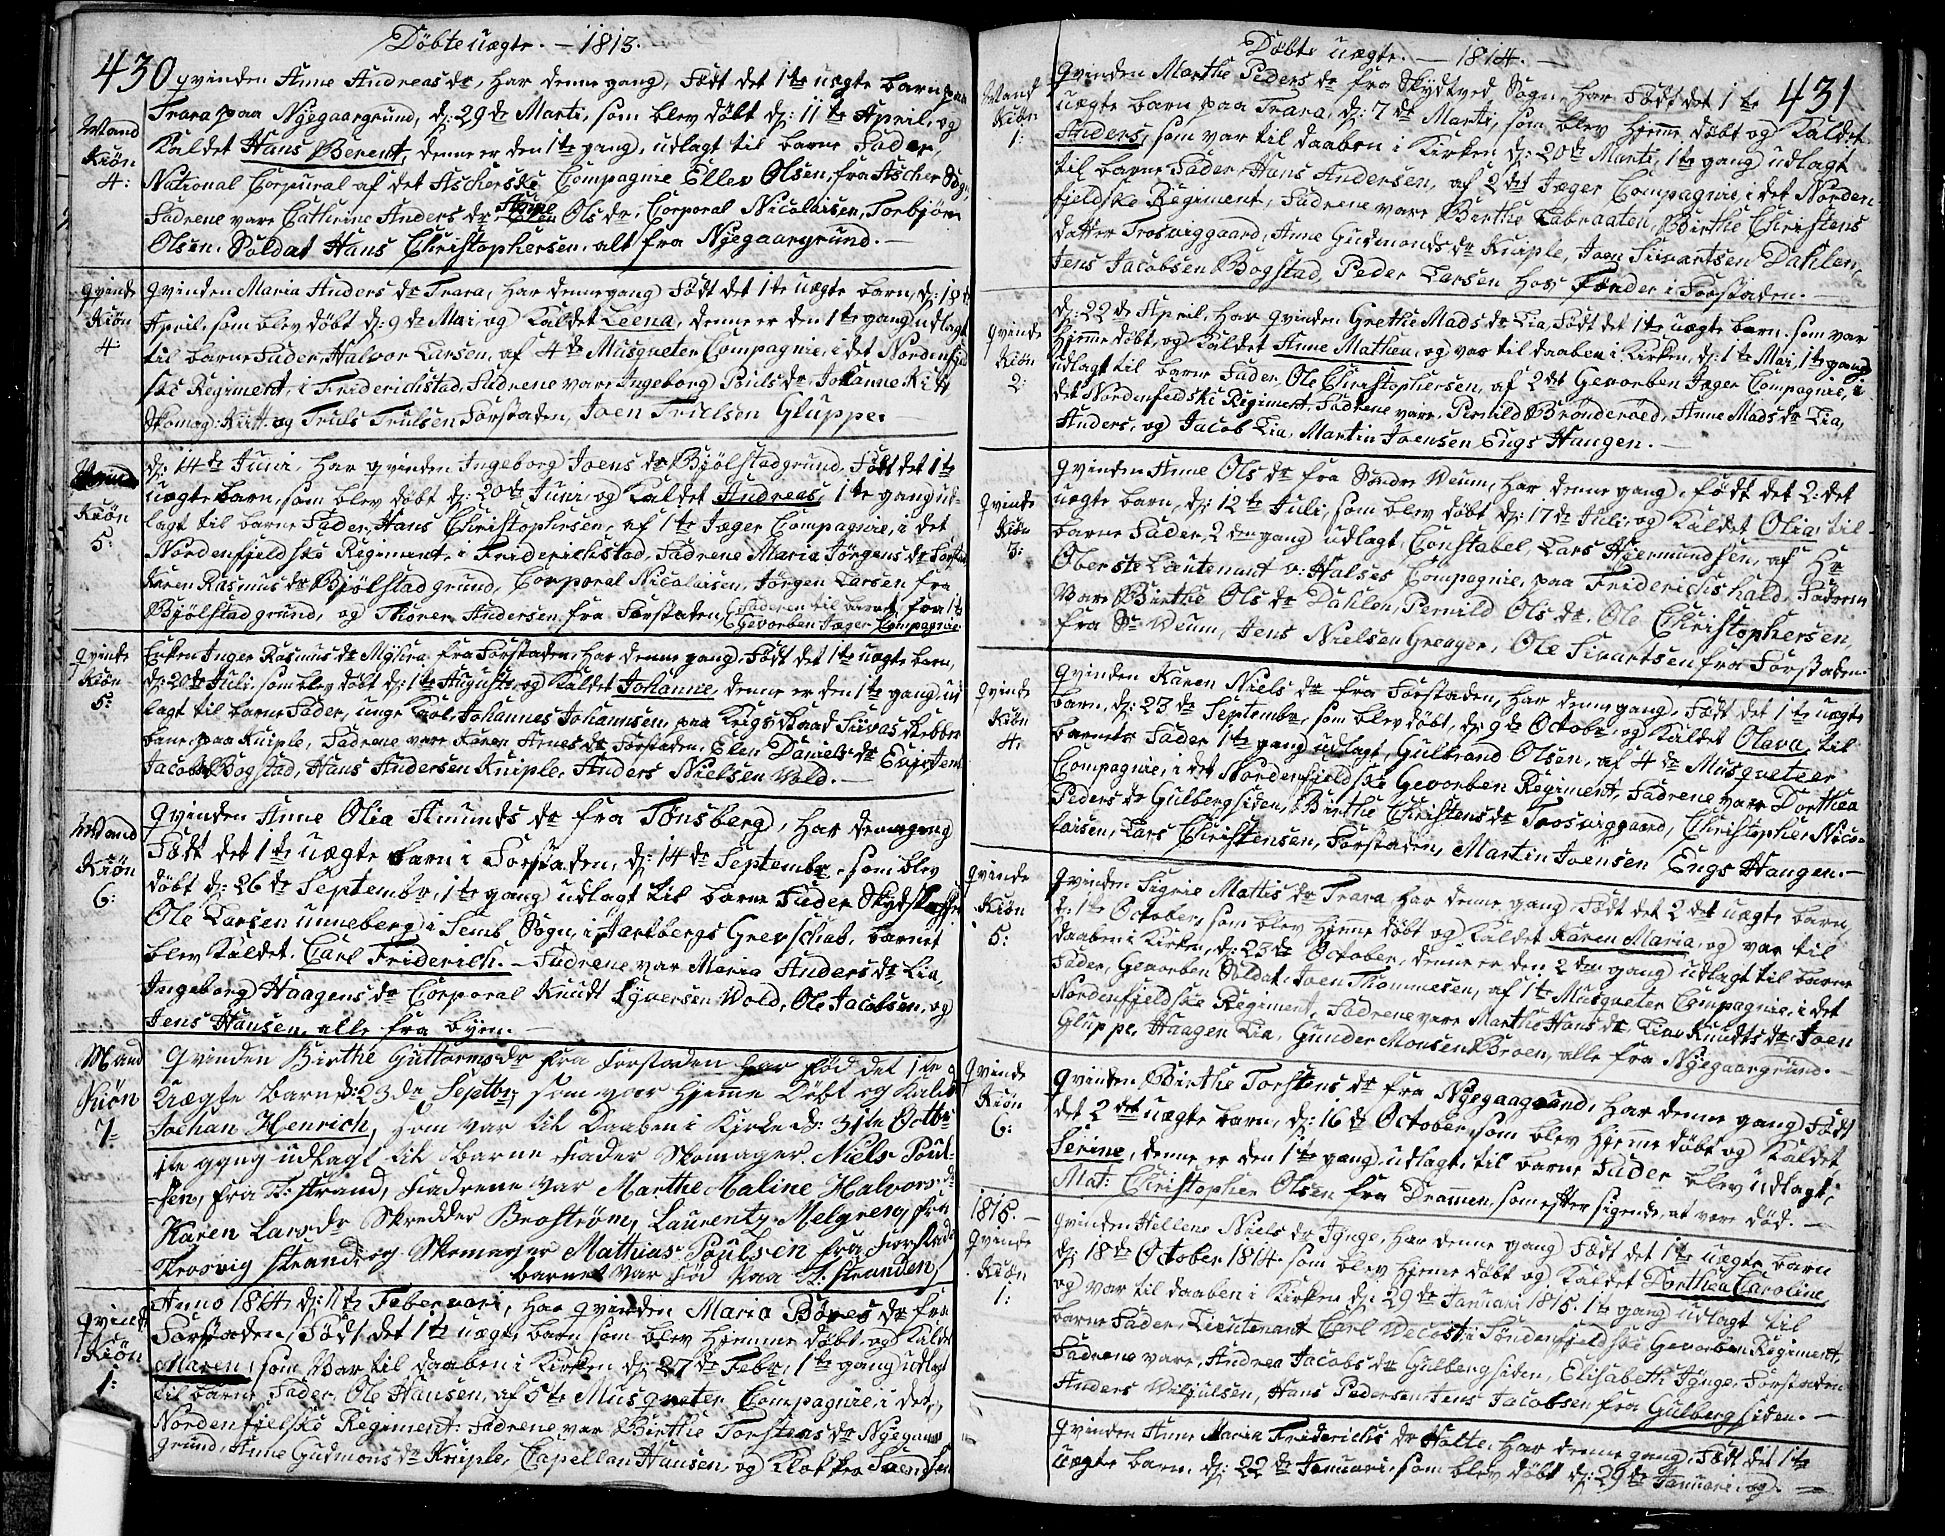 Döbte uægte. – 1813.
430
qvinden Anne Andreas dr, har denne gang, Födt det 1te uægte barn paa
Trara paa Nyegaargrund, d: 29de Marti, som blev döbt d: 11te April, og
Kaldet Hans Berent, denne er den 1te gang, udlagt til barne Fader,
National Corpural af det Ascherske Compagnie Ellev Olsen, fra Ascher Sogn,
Fadrene vare Cathrine Anders dr, Anne Ols dr, Corporal Nicolaisen, Torbjörn
Olsen. Soldat Hans Christophersen, alt fra Nyegaargrund. –
Mand
Kiön
4:
qvinden Maria Anders dr Trara, har denne gang Födt det 1te uægte barn, d: 18de
April, som blev döbt d: 9de Mai, og Kaldet Leena, denne er den 1te gang udlagt
til barne Fader, Halvor Larsen, af 4de Musqueter Compagnie, i det Nordenfield
ske Regiment, i Friderichstad, Fadrene vare Ingeborg Pouls dr, Johanne Kitt
Skomag: Kitt. og Truls Trulsen Forstaden, Joen Truelsen Gluppe.
qvinde
Kiön
4
d: 14de Juni, har qvinden Ingeborg Joens dr Bjölstadgrund, Födt det 1te
uægte barn, som blev döbt d: 20de Juni, og Kaldet Andreas, 1te gang ud-
lagt til barne Fader, Hans Christophersen, af 1te Jæger Compagnie, i det
Nordenfjeldske Regiment, i Friderichstad, Fadrene Maria Jörgens dr Forstad
Karen Rasmus dr Bjölstadgrund, Corporal Nicolaisen, Jörgen Larsen fra
Bjölstadgrund, og Thorer Andersen fra Forstaden, Faderen til barnet, fra 1te
Gevorben Jæger Compagnie.
Kiön
5:
Enken Inger Rasmus dr Mysira, fra Forstaden, har denne gang Födt det 1te uægte barn,
d: 20de Juli, som blev döbt d: 1te Augusti, og Kaldet Johanne, denne er den 1te gang ud
lagt til barne Fader, unge Karl, Johannes Johannsen, paa Krigs Raad Siivas Rebber
bane, paa Kniple, Fadrene vare Karen Arnes dr Forstaden, Elen Daniels dr Jens
Jacobs Bogstad, Hans Andersen Kniple, Anders Nielsen Vold. –
qvinde
Kiön
5:
qvinden Anne Olia Amunds dr fra Tönsberg, har denne gang
Födt det 1te uægte barn i Forstaden, d: 14de Septembr, som blev
döbt d: 26de Septembr, 1te gang udlagt til barne Fader Skydskaffer
Ole Larsen unneberg, i Semb Sogn, i Jarlbergs Grevschab, barnet
blev Kaldet, Carl Friderich. – Fadrene var Maria Anders dr Lia,
Ingeborg Haagens dr Corporal Knudt Syversen Wold, Ole Jacobsen, og
Jens Hansen, alle fra byen. –
Mand
Kiön
6:
Qvinden Birthe Guttorms dr fra Forstaden har fød det 1te
Uægte barn d: 23de Septbr, som var Hjemme Döbt og Kaldt
Johan Henrich, som var til Daaben i Kirken d: 31te Octbr
1te gang udlagt til barne Fader Skomager Niels Poul-
sen, fra T: strand, Fadrene var Marthe Maline Halvors dr
Karen Lars dr Skredder Broström, Laurentz Melgreen, fra
Trosvig strand, og Skomager Mathias Poulsen fra Forstad
barnet var fød paa T: stranden,
Mand
Kiön
7
Anno 1814, d: 11te Februari, har qvinden Maria Böres dr fra
Forstaden, Födt det 1te uægte barn som blev hjemme döbt, og Kaldet
Maren, som var til daaben i Kirken d: 27de Febr, 1te gang udlagt
til barne Fader, Ole Hansen, af 5te Musqueter Compagnie, i det
Nordenfjelske Regiment: Fadrene var Birthe Torstens dr Nyegaar
grund, Anne Gudmons dr Kniple, Capellan Hansen, og Klokker Svendsen
qvinde
Kiön
1:
Döbte uægte. – 1814. –
431
qvinden Marthe Peders dr fra Skydtved Sogn, har Födt det 1te
uægte barn paa Trara, d: 7de Marti, som blev hjemme döbt og Kaldet
Anders, som var til daaben i Kirken d: 20de Marti, 1te gang udlagt
til barne Fader, Hans Andersen, af 2det Jæger Compagnie i det Norden
fjeldske Regiment, Fadrene vare Birthe Labraaten, Birthe Christens
datter Trosviggaard, Anne Gudmonds dr Kniple, Joen Siivartsen Dahlen,
Jens Jacobsen Bogstad, Peder Larsen hos Tönder i Forstaden. –
Mand
Kiön
1:
d: 22de April, har qvinden Grethe Mads dr Lia, Födt det 1te uægte barn, som var
hjemme döbt, og Kaldet Anne Mathea, og var til daaben i Kirken, d: 1te Mai, 1te gang
udlagt til barne Fader Ole Christophersen, af 2det Gevorben Jæger Compagnie, i
det Nordenfeldske Regiment, Fadrene vare, Pernild Brönderöed, Anne Mads dr Lia,
Anders, og Jacob Lia, Martin Joensen Engs Haugen. –
qvinde
Kiön
2:
qvinden Anne Ols dr fra Söndre Weum, har denne gang, födt det 2:det
uægte barn, d: 12te Juli, som blev döbt d: 17de Juli, og Kaldet Olia, til
barne Fader, 2den gang udlagt, Constabel, Lars Hjermundsen, af Hr
Oberste Lautenant v: Halses Compagnie, paa Friderichshald, Fadrene
Vare Birthe Ols dr Dahlen, Pernild Ols dr, Ole Christophersen,
fra Sr Weum, Jens Nielsen Greager, Ole Sivartsen fra Forstaden.
qvinde
Kiön
3:
qvinden Karen Niels dr fra Forstaden, har denne gang, Födt det 1te uægte
barn, d: 23de Septembr, som blev döbt, d: 9de Octobr, og Kaldet Olava, til
barnets Fader 1te gang udlagt, Gulbrand Olsen, af 4de Musqueteer
Compagnie, i det Nordenfieldske Gevorben Regiment, Fadrene vare Dorthea
Peders dr Gulbergsiden, Birthe Christens dr Trosviggaard, Christopher Nico-
laisen, Lars Christensen, Forstaden, Martin Joensen Engs Haugen. –
qvinde
Kiön
4:
qvinden Sigrie Mattis dr Trara, har denne gang, Födt det 2det uægte barn,
d: 1te October, som blev hjemme döbt og Kaldet Karen Maria, og var til
daaben i Kirken, d: 23de October, denne er den 2den gang udlagt til barne
Fader, Gevorben Soldat, Joen Thommesen, af 1te Musqueter Compagnie, i det
Nordenfjeldske Regiment, Fadrene vare Marthe Hans dr Lia, Knudts dr, Joen
Gluppe, Haagen Lia, Gunder Monsen Broen, alle fra Nyegaargrund. –
qvinde
Kiön
5:
qvinden Birthe Torstens dr fra Nyegaagrund, har denne gang Födt
det 2det uægte barn, d: 16de October, som blev hjemme döbt og Kaldet
Serine, denne er den 1te gang udlagt, til barne Fader blev udlagt,
Mat: Christopher Olsen fra Dramen, som efter sigende, at være död. –
qvinde
Kiön
6:
qvinden Hellene Niels dr Tynge, har denne gang Födt det 1te uægte barn
d: 18de October 1814. som blev hjemme döbt og Kaldet Dorthea Caroline,
og var til daaben i Kirken d: 29de Januari 1815. 1te gang udlagt til
barne Fader, Lieutenant Carl Wecost i Söndenfjeldske Gevorben Regiment,
Fadrene vare, Andrea Jacobs dr Gulbergsiden, Elisabeth Tynge, Forstaden
Anders Wilsulsen, Hans Pedersen, Jens Jacobsen fra Gulbergsiden. –
1815. –
qvinde
Kiön
1:
qvinden Anne Maria Friderichs dr Holte, har denne gang, Födt det 1te
uægte barn, d: 22de Januari, som blev döbt d: 29de Januari, og –